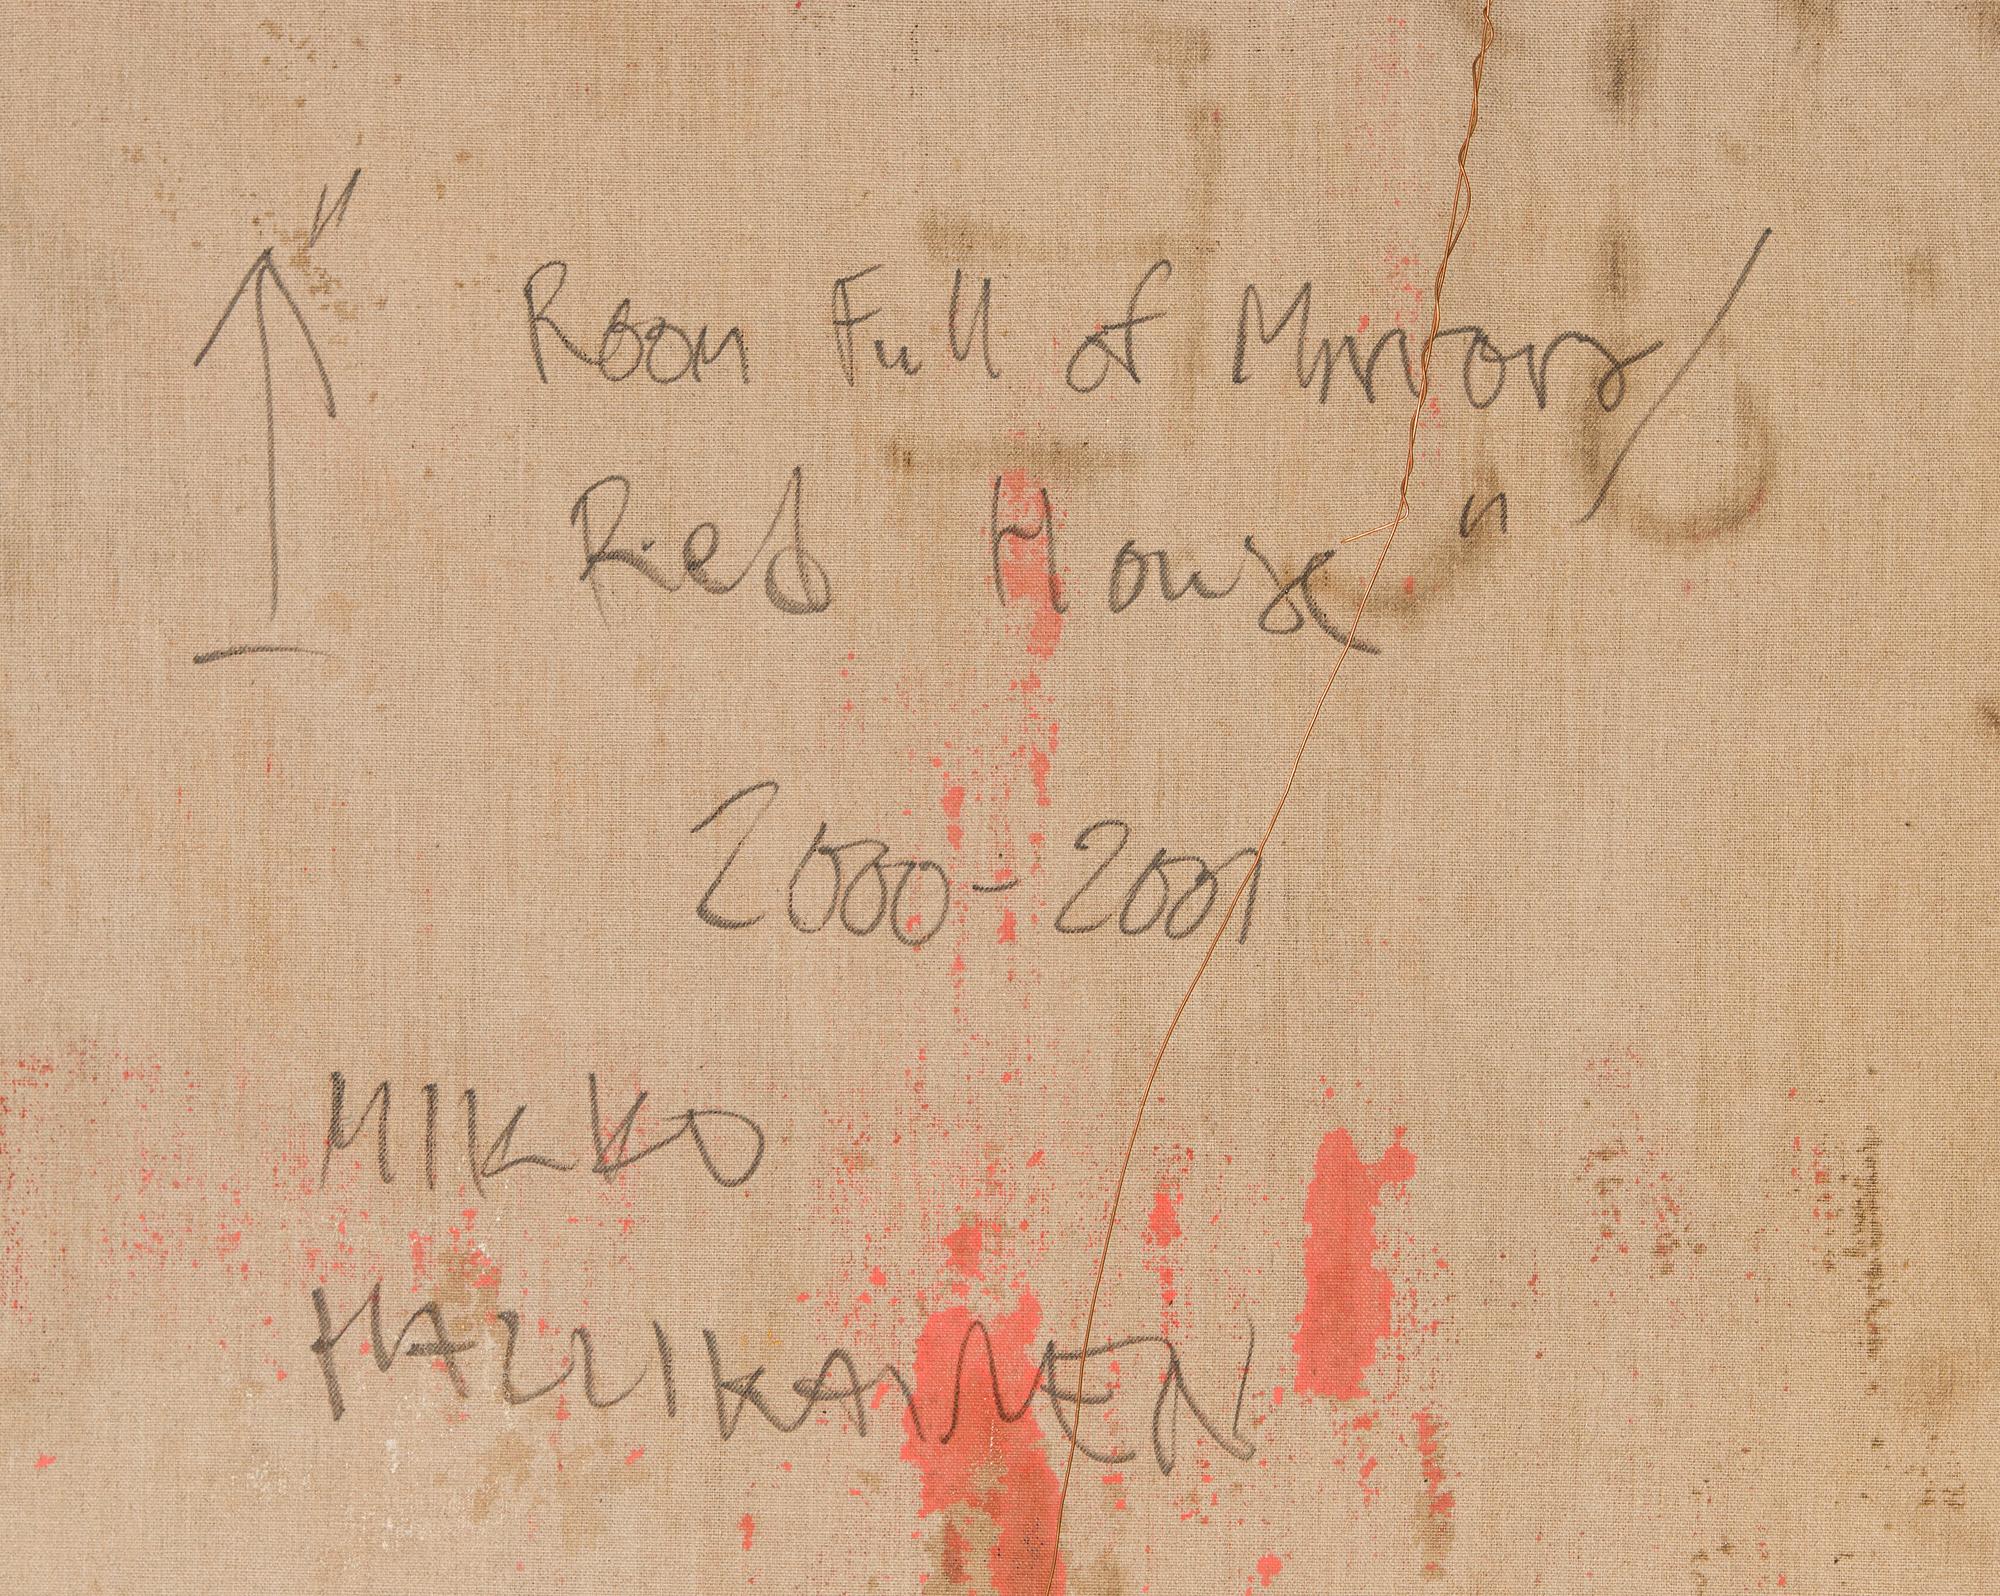 " Room Full of Mirrors/
Red House "
2000-2001
MIKKO
HALLIKAINEN